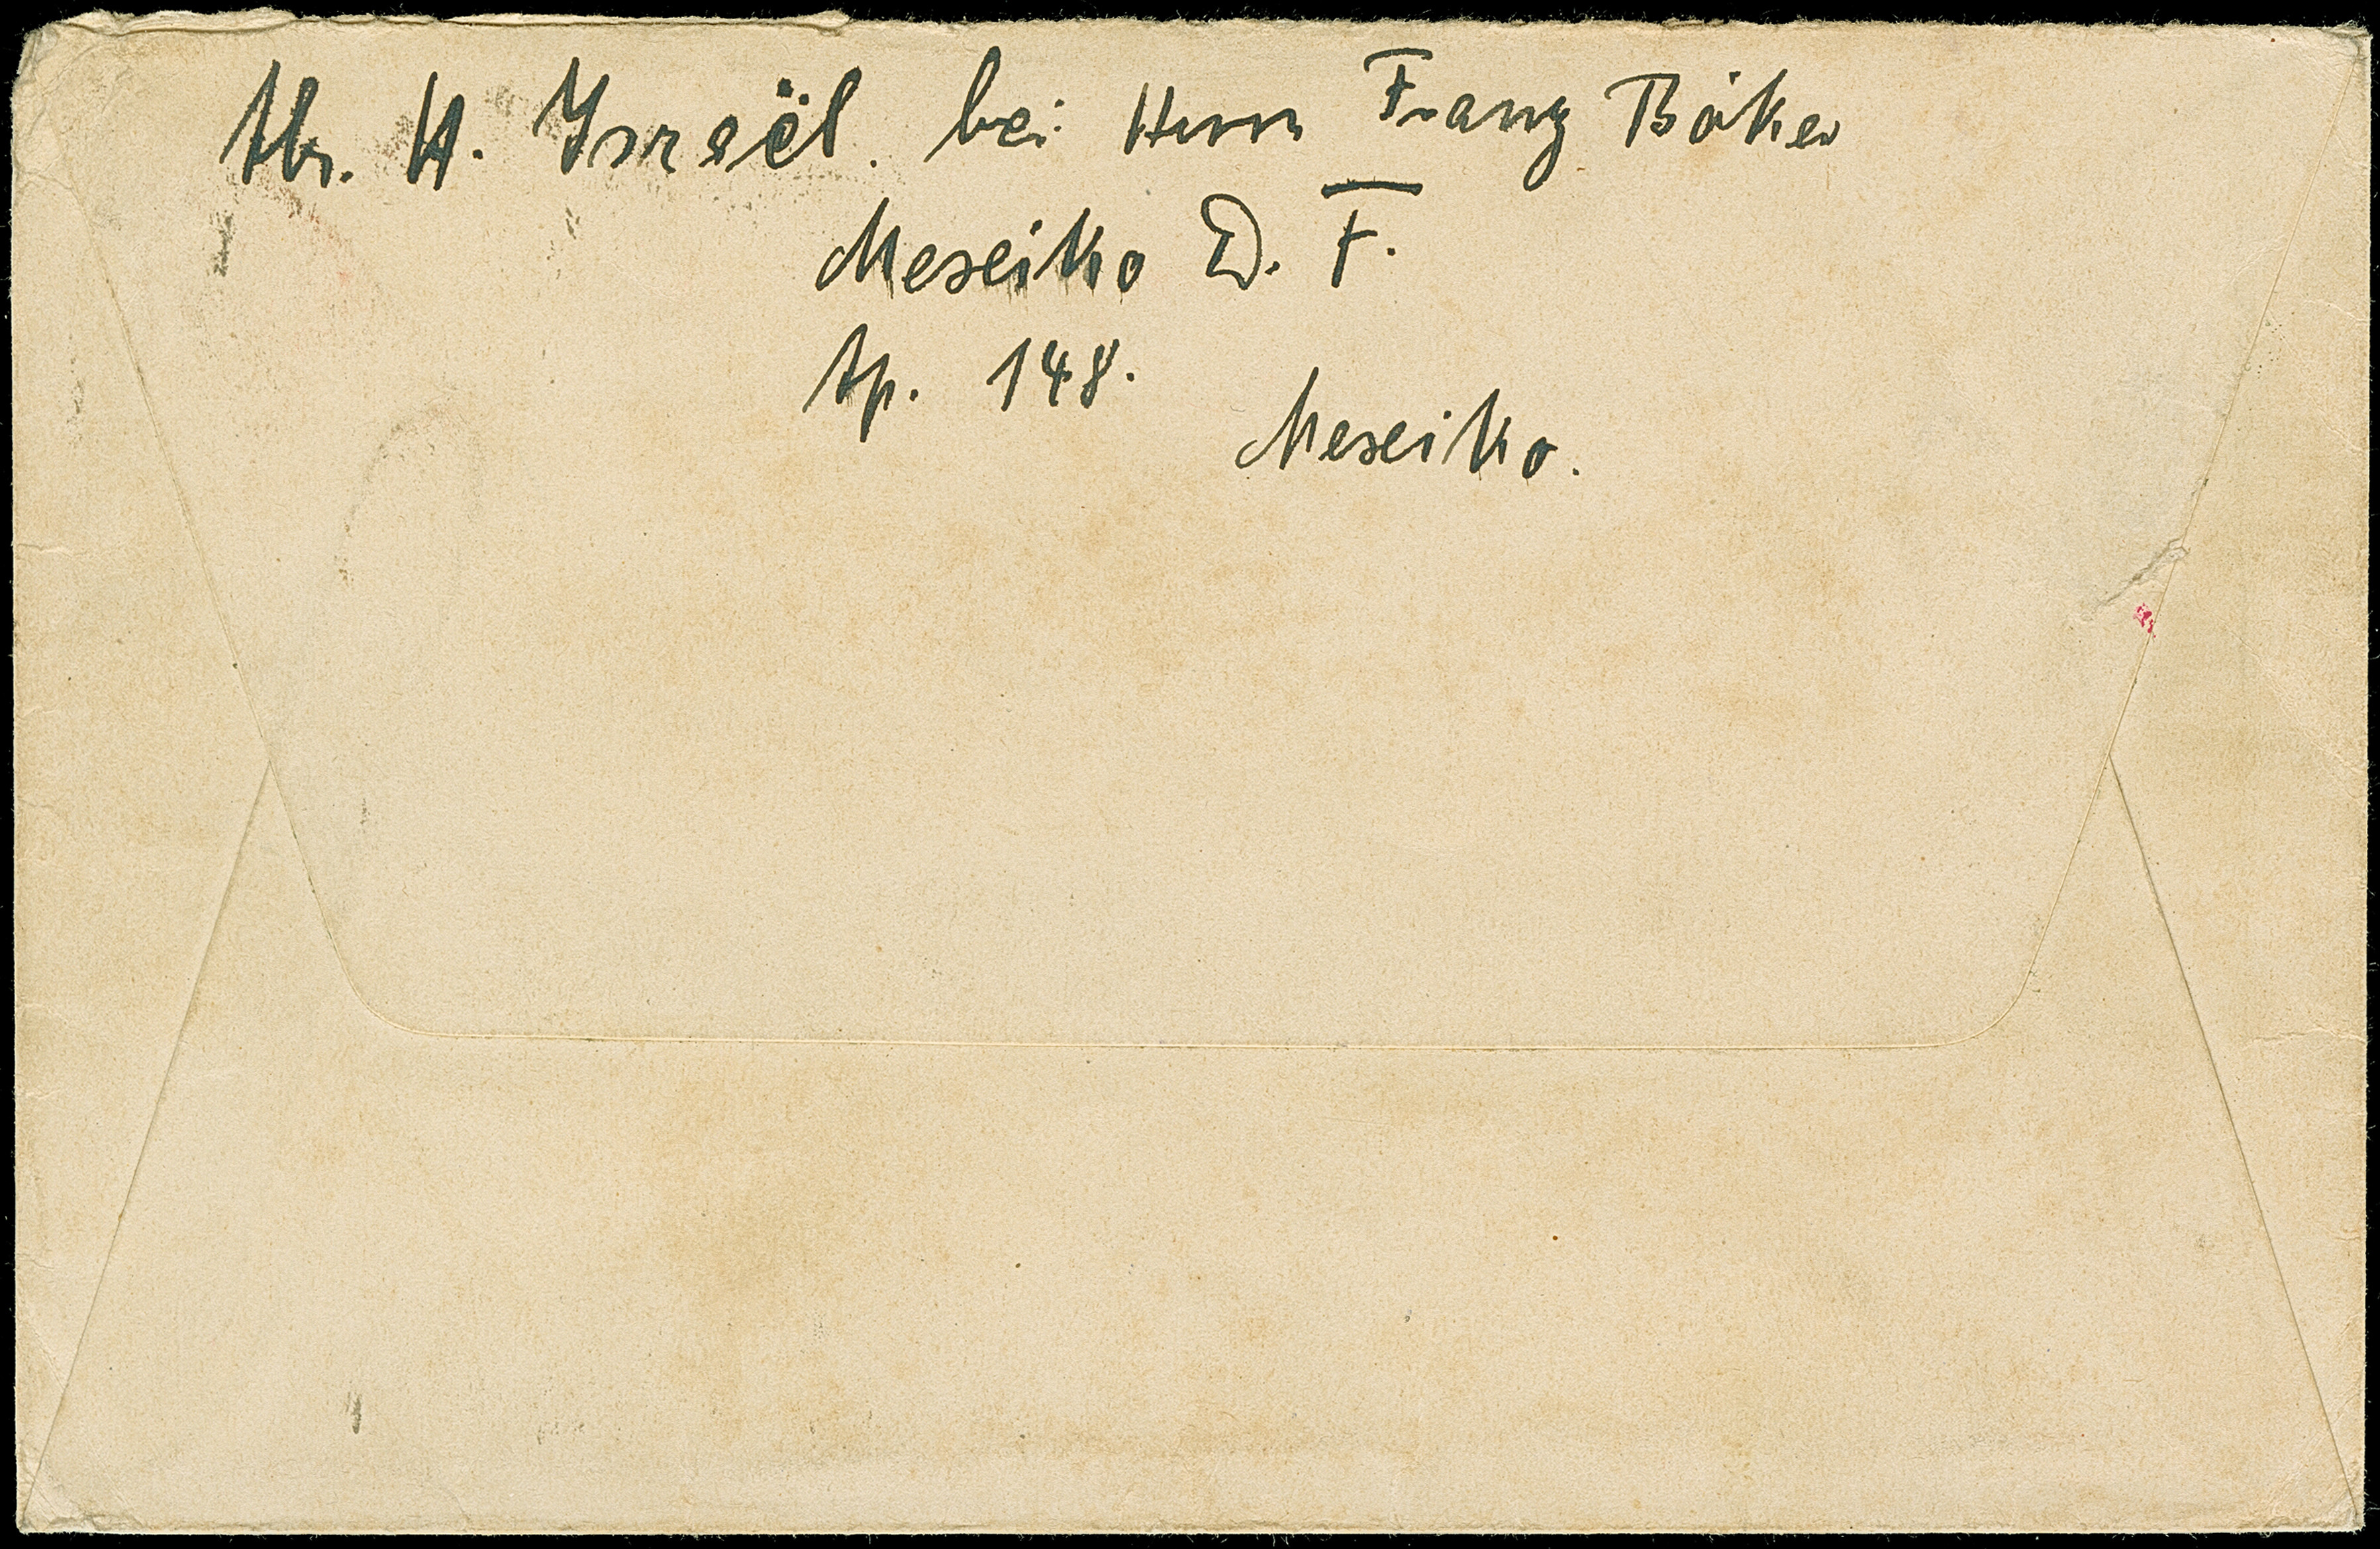 Abs. H. Israël. bei Herrn Franz Böker
Mexeiko D. F.
Ap. 148.
Mexeiko.